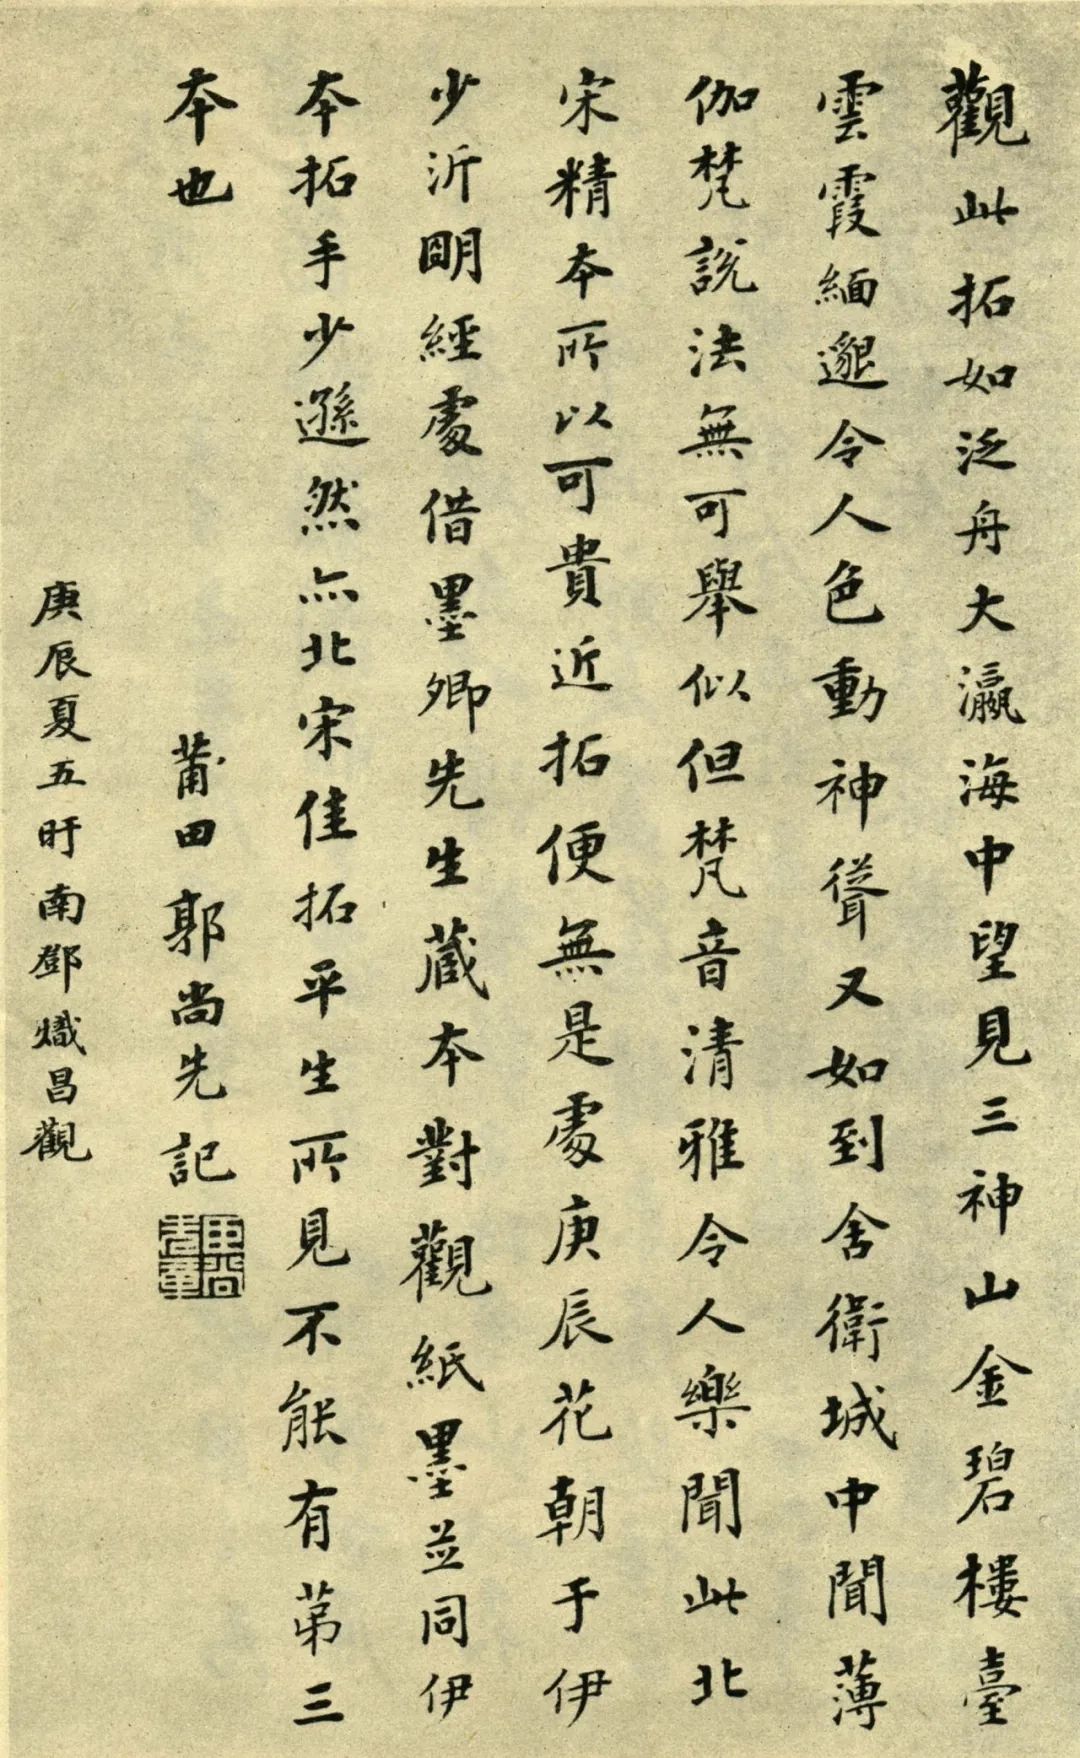 觀此拓如泛舟大瀛海中望見三神山金碧樓臺
雲霞緬邈令人色動神聳又如到舍衛城中聞薄
伽梵說法無可舉似但梵音清雅令人樂聞此北
宋精本所以可貴近拓便無是處庚辰花朝于伊
少沂明經處借墨卿先生藏本對觀紙墨並同伊
本拓手少遜然亦北宋佳拓平生所見不能有第三
本也
莆田郭尚先記
庚辰夏五盱南鄧熾昌觀